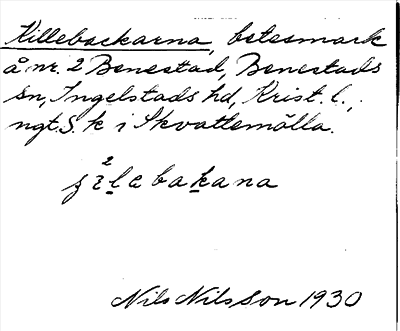 Killebackarna, betesmark
å nr. 2 Benestad, Benestads
sn, Ingelstads hd, Krist. l.,
ngt S. k i Skvattemölla.
Nils Nilsson 1930